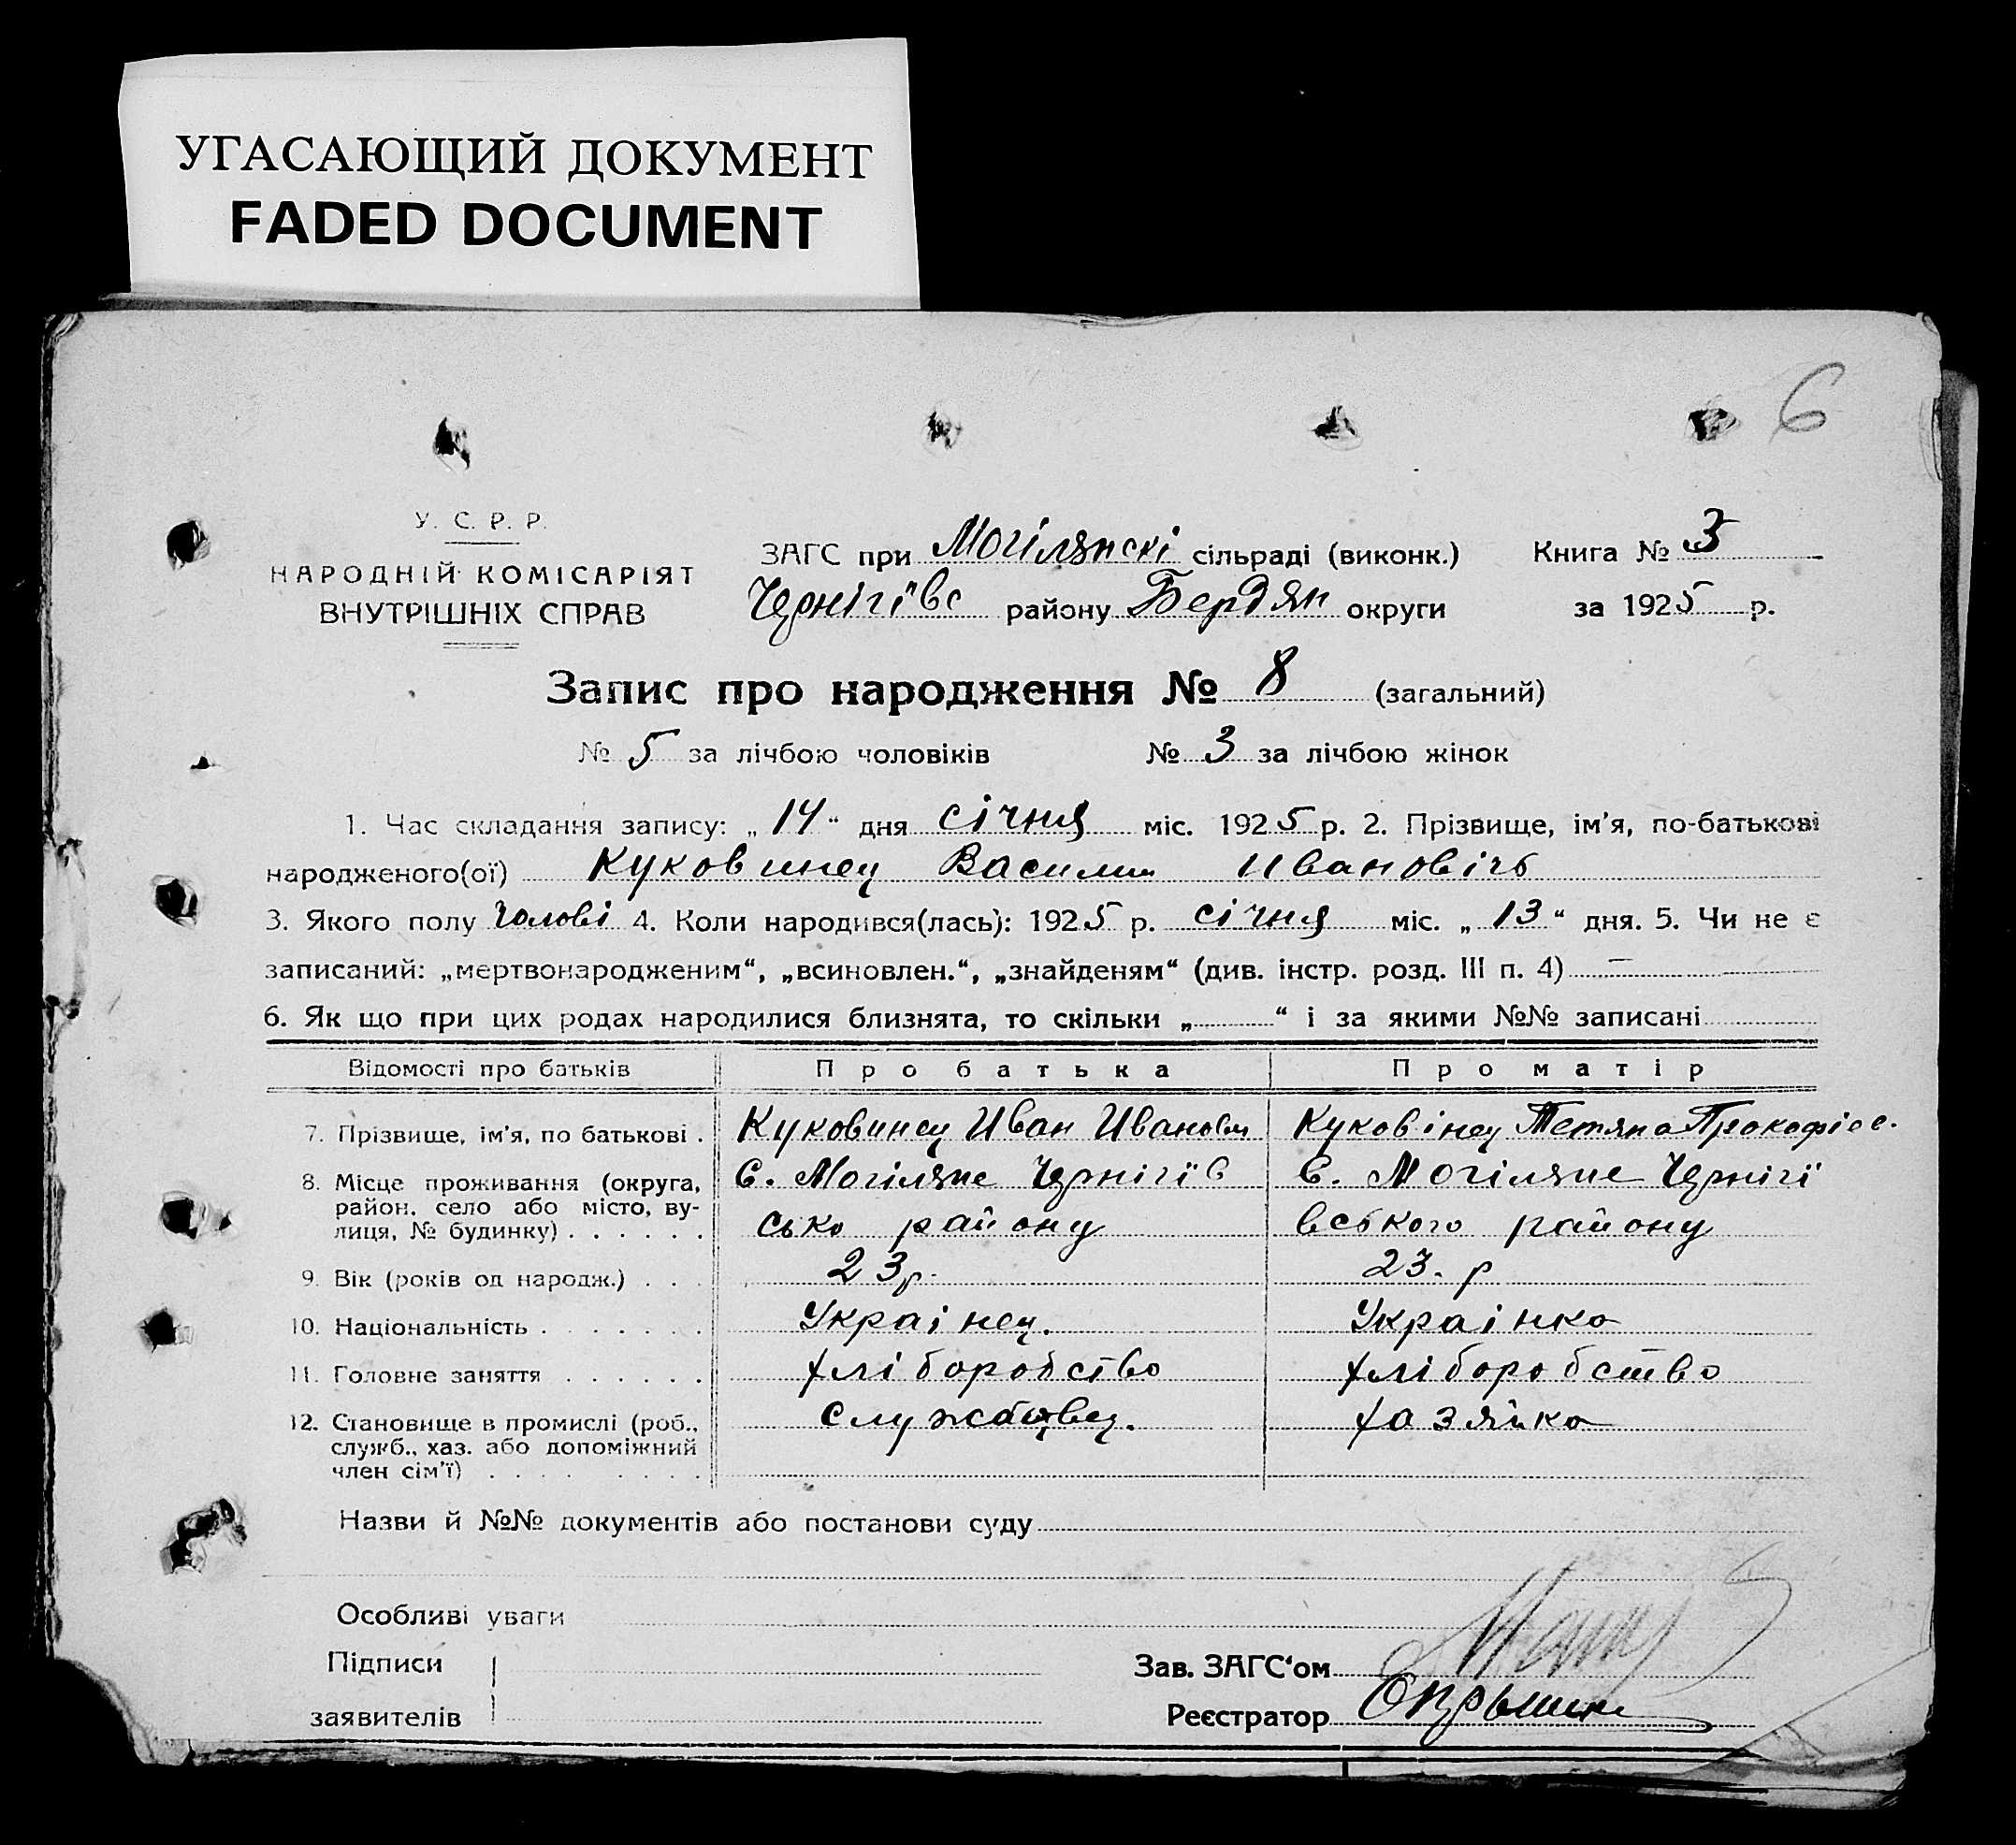 УГАСАЮЩИЙ ДОКУМЕНТ
FADED DOCUMENT
6
У. С. Р. Р.
НАРОДНІЙ КОМІСАРІЯТ
ВНУТРІШНІХ СПРАВ
ЗАГС при Могілянскі сільраді (виконк.) Книга № 3
Чернігівс району Бердян округи за 1925 р.
Запис про народження № 8 (загальний)
№ 5 за лічбою чоловіків № 3 за лічбою жінок
1. Час складання запису: „14“ дня січня міс. 1925 р. 2. Прізвище, ім'я, по-батькові
народженого(ої) Куковинец Василий Ивановічь
3. Якого полу Чолові 4. Коли народився(лась): 1925 р. січня міс. „13“ дня. 5. Чи не є
записаний: „мертвонародженим“, „всиновлен.“, „знайденям“ (див. інстр. розд. III п. 4) —
6. Як що при цих родах народилися близнята, то скільки „ “ і за якими №№ записані
Відомості про батьків Про батька Про матір
7. Прізвище, ім'я, по батькові . Куковинец Иван Иванови Куковінец Тетяна Прокофіев.
8. Місце проживання (округа, с. Могіляне Чернігїв с. Могіляне Чернігї
район, село або місто, ву- сько району вського району
лиця, № будинку) . . . . . .
9. Вік (років од народж.) . . . 23 р. 23. р
10. Національність . . . . . . . Украінец. Украінка
11. Головне заняття . . . . . . хліборобство хліборобство
12. Становище в промислі (роб., службовец. хазяйка
служб., хаз. або допоміжний
член сім'ї) . . . . . . . . .
Назви й №№ документів або постанови суду
Особливі уваги
Підписи
заявителів
Зав. ЗАГС‘ом
Реєстратор